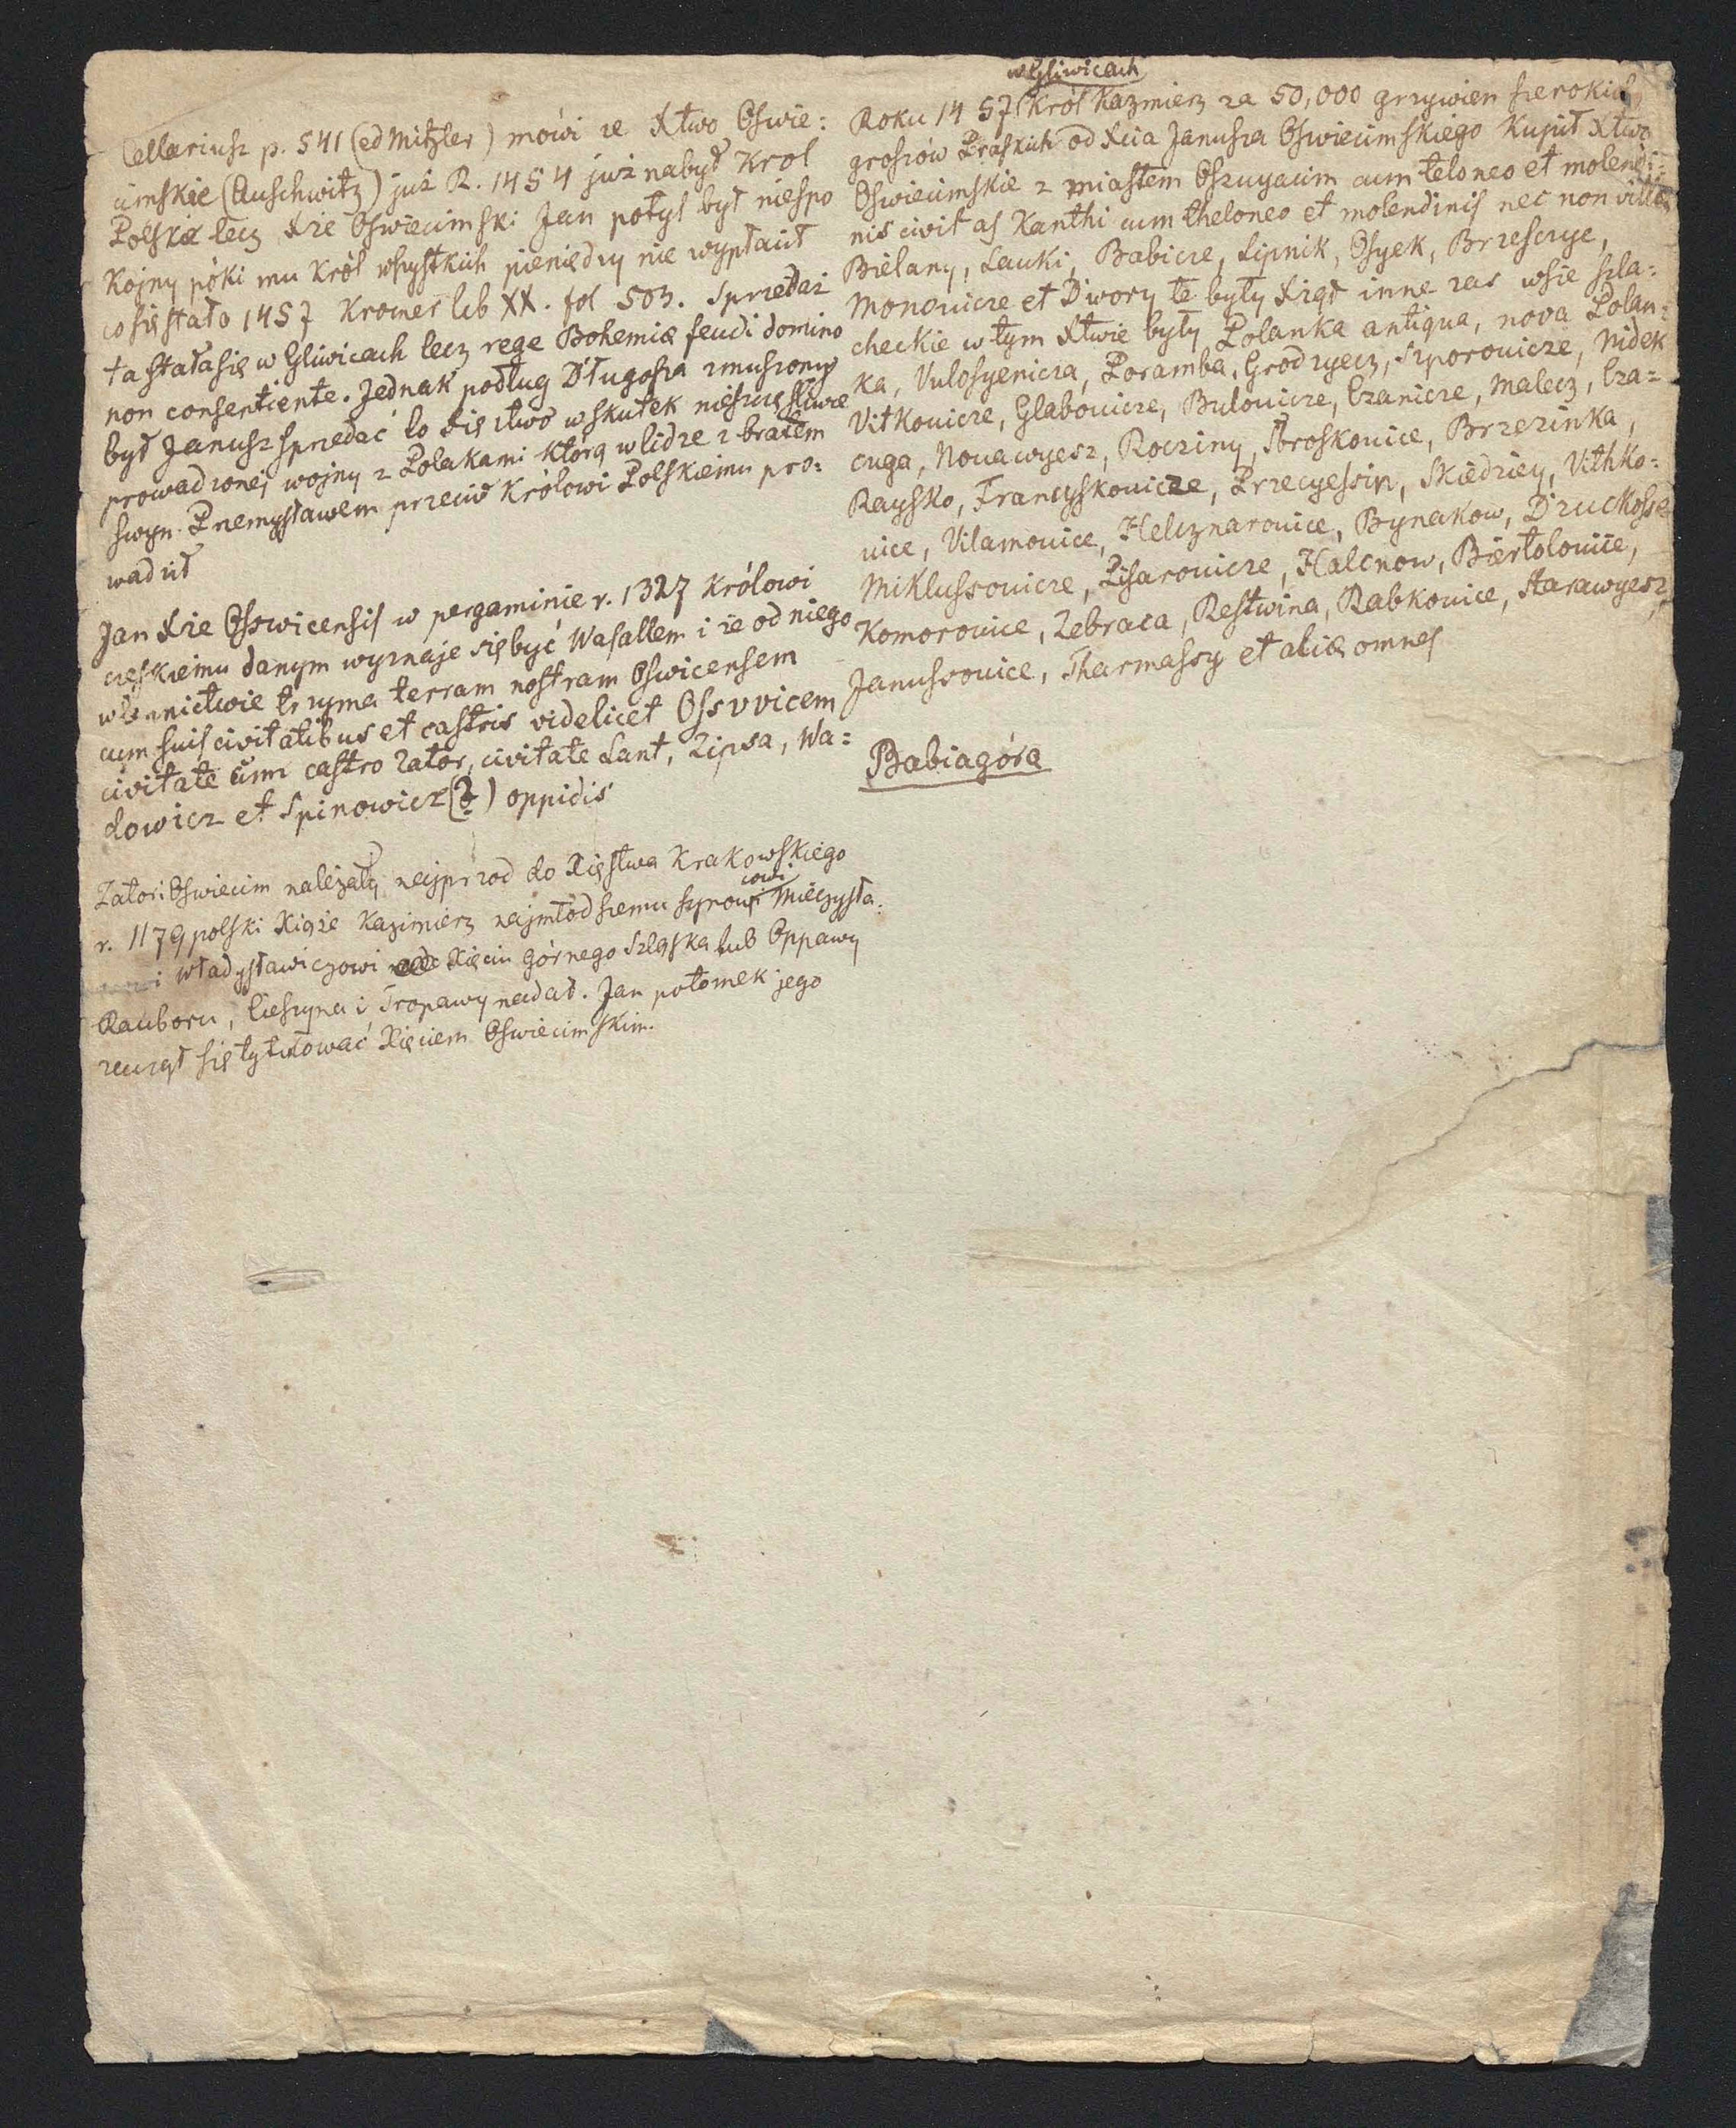 Cellariusz p. 541 (ed Mitzler) mówi że Xtwo Oswie:
cimskie (Auschwitz) już R. 1454 już nabył Krol
Polski lecz Xże Oswiecimski Jan potyl był niespo
Kojny póki mu Król wszystkich pieniędzy nie wypłacił
co się stało 1457 Kromer lib XX. fol 503. Sprzedaż
ta stała się w Gliwicach lecz rege Bohemiæ feudi domino
non consentiente. Jednak podług Długosza zmuszony
był Janusz sprzedać to Xięztwo wskutek nieszczęśliwie
prowadzonej wojny z Polakami którą w lidze z bratem
swym Przemysławem przeciw Królowi Polskiemu pro:
wadził
Jan Xże Osowicensis w pergaminie r. 1327 Królowi
czeskiemu danym wyznaje się być Wasallem i że od niego
w lennictwie trzyma terram nostram Oswicensem
cum suis civitatibus et castris videlicet Ossvvicem
civitate cum castro Zator, civitate Kant, Zipsa, Wa:
dowicz et Spinowicz (?) oppidis
Zator i Oswiecim należały najprzod do Xięstwa Krakowskiego
r. 1179 polski Xiąże Kazimierz najmłodszemu synowi Mieczysła:
cowi
wi Władysławiczowi Xięciu górnego Szląska lub Oppawy
Rauboru, Cieszyna i Tropawy nadał. Jan potomek jego
zaczął się tytułować Xięciem Oswiecimskim.
w Gliwicach
Roku 1457 Król Kazmierz za 50,000 grzywien szerokich
groszów Praskich od Xcia Janusza Oswiecimskiego Kupił Xtwo
Oswiecimskie z miastem Oszuyacim cum teloneo et molendi:
nis civitas Kanthi cum theloneo et molendinis nec non villas
Bielany, Lauki, Babicze, Lipnik, Osyek, Brzesczye,
Monouicze et Dwory te były Xiąż inne zas wsie szla:
checkie w tym Xtwie były Polanka antiqua, nova Polan:
ka, Vulosyenicza, Poramba, Grodzyecz, Szporouicze, Nidek
Vitkouicze, Glabouicze, Bulouicze, Czanicze, Malecz, Cza=
cuga, Nouawyesz, Rocziny, Broskouice, Brzezinka,
Raysko, Francyskouicze, Przecyessin, Skiedziey, Vithko:
uice, Vilamouice, Helcznarouice, Bynakow, Druckosse
Miklussouicze, Pisarouicze, Halcnow, Biertolouice,
Komorouice, Zebraca, Restwina, Rabkouice, Starawyesz,
Janussouice, Tharmassy et aliæ omnes
Babiagóra